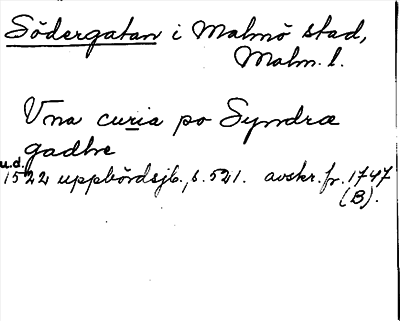 Södergatan i Malmö stad,
Malm. l.
Vna curia po Syndræ
gadhe
u.d.
1522 uppbördsjb., s. 521. avskr. fr. 1747
(B).